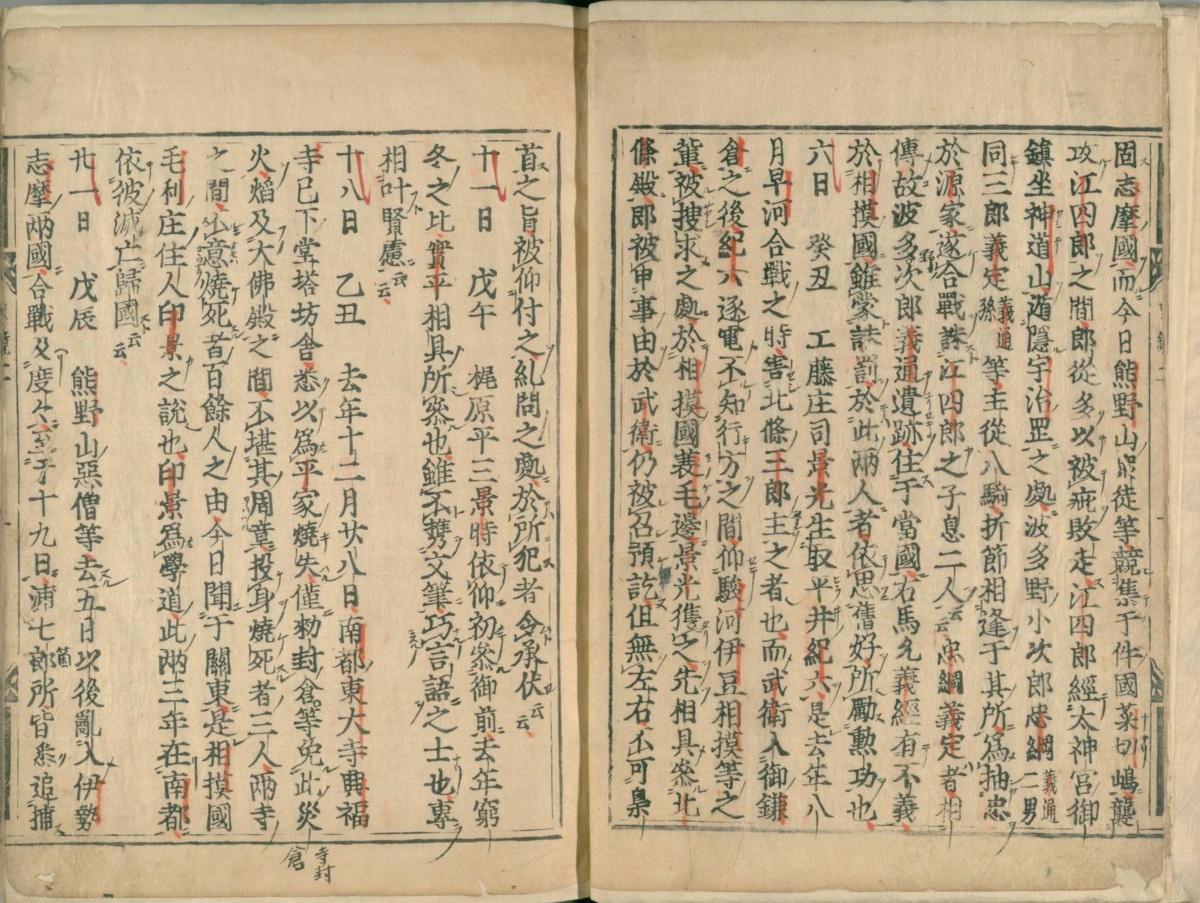 固志摩國而今日熊野山衆徒等競集于件國菜切嶋襲
攻江四郎之間郎從多以被疵敗走江四郎經太神宮御
鎮坐神道山遁隱宇治罡之處波多野小次郎忠綱義通二男
同三郎義定義通孫等主從八騎折節相逢于其所爲抽忠
於源家遂合戰誅江四郎之子息二人云云忠綱義定者相
傳故波多野次郎義通遺跡住于當國右馬允義經有不義
於相摸國雖蒙誅罰於此兩人者依思舊好所勵勲功也
六日 癸丑 工藤庄司景光生取平井紀六是去年八
月早河合戰之時害北條三郎主之者也而武衛入御鎌
倉之後紀六逐電不知行方之間仰駿河伊豆相摸等之
輩被搜求之處於相摸國蓑毛邊景光獲之先相具參北
條殿即被申事由於武衛仍被召預訖但無左右不可梟
首之旨被仰付之糺問之處於所犯者令承伏云云
十一日 戊午 梶原平三景時依仰初參御前去年窮
冬之比實平相具所參也雖不携文筆巧言語之士也專
相叶賢慮云云
十八日 乙丑 去年十二月廿八日南都東大寺興福
寺已下堂塔坊舍悉以爲平家燒失僅勅封倉等免此災
火焔及大佛殿之間不堪其周章投身燒死者三人兩寺
之間不意燒死者百餘人之由今日聞于關東是相摸國
毛利庄住人印景之説也印景爲學道此兩三年在南都
依彼滅亡歸國云云
廿一日 戊辰 熊野山惡僧等去五日以後亂入伊勢
志摩兩國合戰及度々至于十九日浦七郎所皆悉追捕
寺封
倉